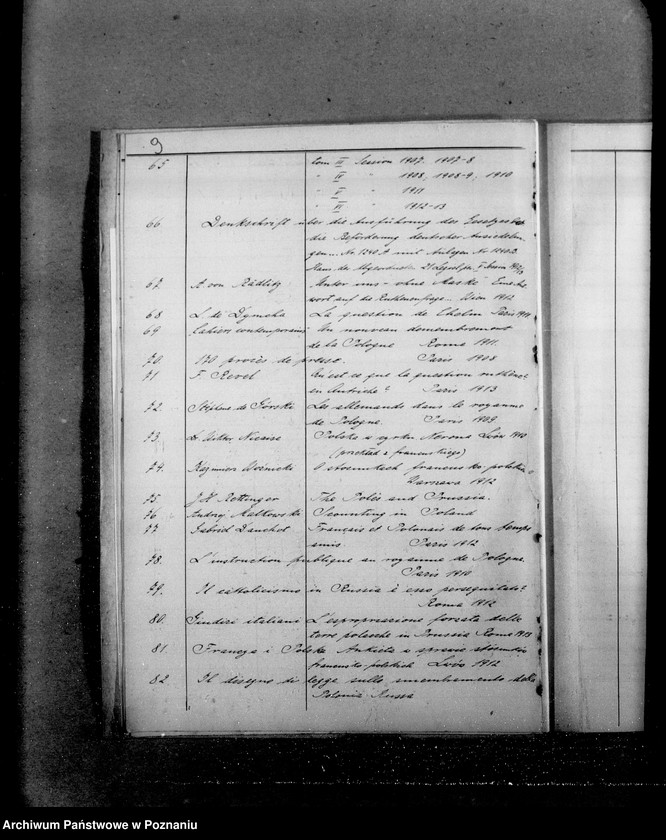 9
65 tom III Session 1907. 1907-8
" IV " 1908, 1908-9, 1910
" V " 1911
" VI " 1912-13
66 Denkschrift über die Ausführung des Gesetzes
die Beförderung deutscher Ansiedelun
gen... Nr. 1240 A mit Anlagen Nr.
21 Legisl. per. V Session
67. A von Rädlitz Unter uns - ohne Maske
wort auf die Ruthenenfrage - Wien 1912
68 L. de Dymcha La question de Cholm Paris
69 Cahiers contemporains Un nouveau démembrement
de la Pologne Roma 1911.
70. 170 procès de presse. Paris 1908
71 F. Revel Qu'est ce que la question
en Autriche? Paris 1913
72. Stéphane de Gorski Les allemands dans le royaume
de Pologne. Paris 1909
73. Dr Wiktor Nicaise Polska a Lwów
(przekład z francuskiego)
74. Kazimierz Woźnicki O stosunkach francusko-polskich
Warszawa 1912
75 J H Rettinger The Poles and Prussia.
76 Andrzej Małkowski Scounting in Poland
77 Gabriel Dauchot Français et Polonais de tous temps
amis Paris 1912
78. L'instruction publique au royaume de Pologne.
Paris 1910
79. Il catholicismo in Russia è esso perseguitato?
Roma 1912
80. Giudizi italiani L'espropriazione forzata delle
terre polacche in Prussia Roma
81. Francya i Polska Ankieta w sprawie
francusko polskich Lwów 1912
82 Il disegno di legge sullo smembramento della
Polonia Russa
Archiwum Państwowe w Poznaniu